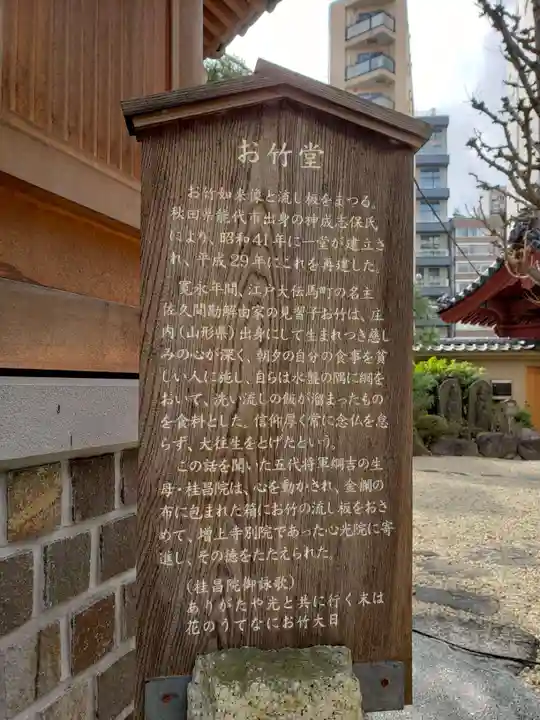 お竹堂
お竹如来像と流し板をまつる。
秋田県能代市出身の神成志保氏
により、昭和41年に一堂が建立さ
れ、平成29年にこれを再建した。
寛永年間、江戸大伝馬町の名主
佐久間勘解由家の見習子お竹は、庄
内(山形県)出身にして生まれつき慈し
みの心が深く、朝夕の自分の食事を貧
しい人に施し、自らは水盤の隅に網を
おいて、洗い流しの飯が溜まったもの
を食料とした。信仰厚く常に念仏を怠
らず、大往生をとげたという。
この話を聞いた五代将軍綱吉の生
母・桂昌院は、心を動かされ、金襴の
布に包まれた箱にお竹の流し板をおさ
めて、増上寺別院であった心光院に寄
進し、その徳をたたえられた。
(桂昌院御詠歌)
ありがたや光と共に行く末は
花のうてなにお竹大日